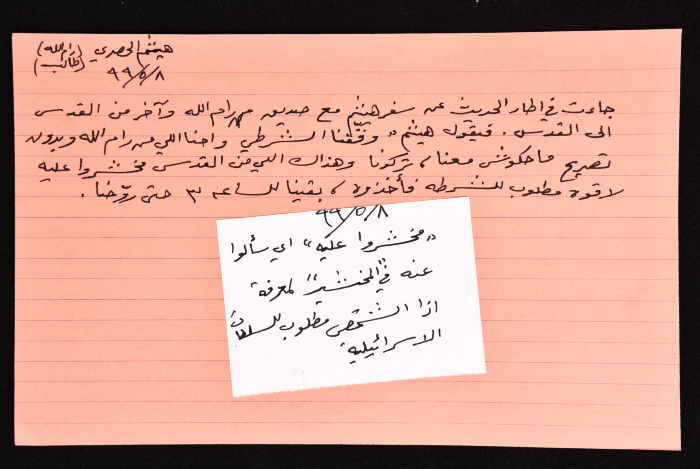 هيثم الحصري (رام الله)
(طالب)
٩٩/٥/٨
جاءت في اطار الحديث عن سفر هيثم مع صديق من رام الله وآخر من القدس
الى القدس. فيقول هيثم "وقّفنا الشرطي واحنا اللي من رام الله وبدون
تصريح ما حكوش معنا، تركونا وهذاك اللي من القدس مخشروا عليه
لاقوه مطلوب للشرطه فأخذوه، بقينا للساعه ٣ حتى روّحنا.
٩٩/٥/٨
"مخشروا عليه" اي سألوا
عنه في "المخشير" لمعرفة
اذا الشخص مطلوب للسلطات
الاسرائيلية